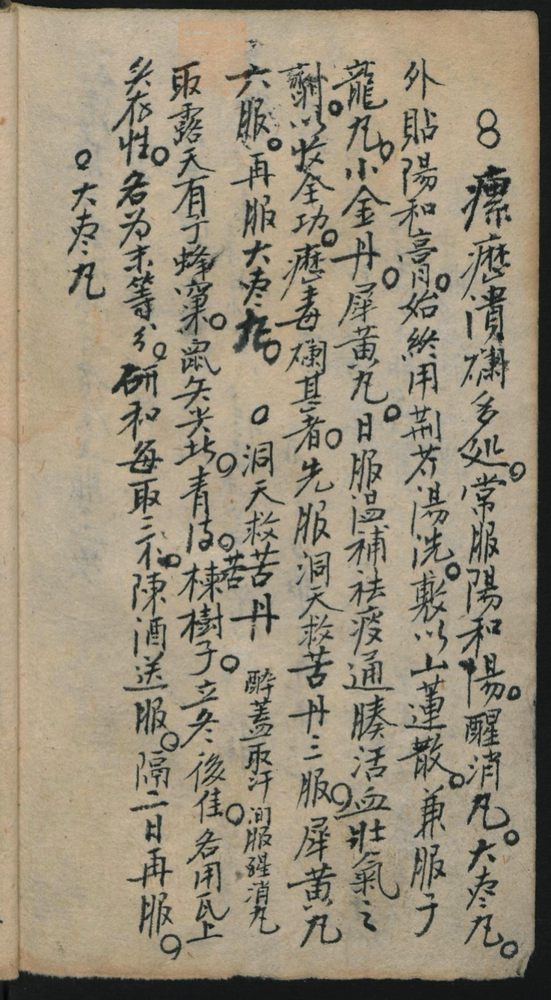 8 瘰癧潰爛多処。常服陽和湯。醒消丸。大枣丸。
外貼陽和膏。始終用荆芥湯洗。敷以山蓮散。兼服子
龍丸。小金丹。犀黄丸。日服温補祛痰通腠活血壯氣之
劑。以收全功。癧毒爛甚者。先服洞天救苦丹三服。犀黄丸
六服。再服大枣丸。 ○洞天救苦丹 醉蓋取汗 间服醒消丸
取露天有子蜂窠。鼠矢尖北。青皮。苦楝樹子。立冬後佳。各用瓦上
炙存性。各为末等分。研和每取三不。陳酒送服。隔二日再服。
○大枣丸